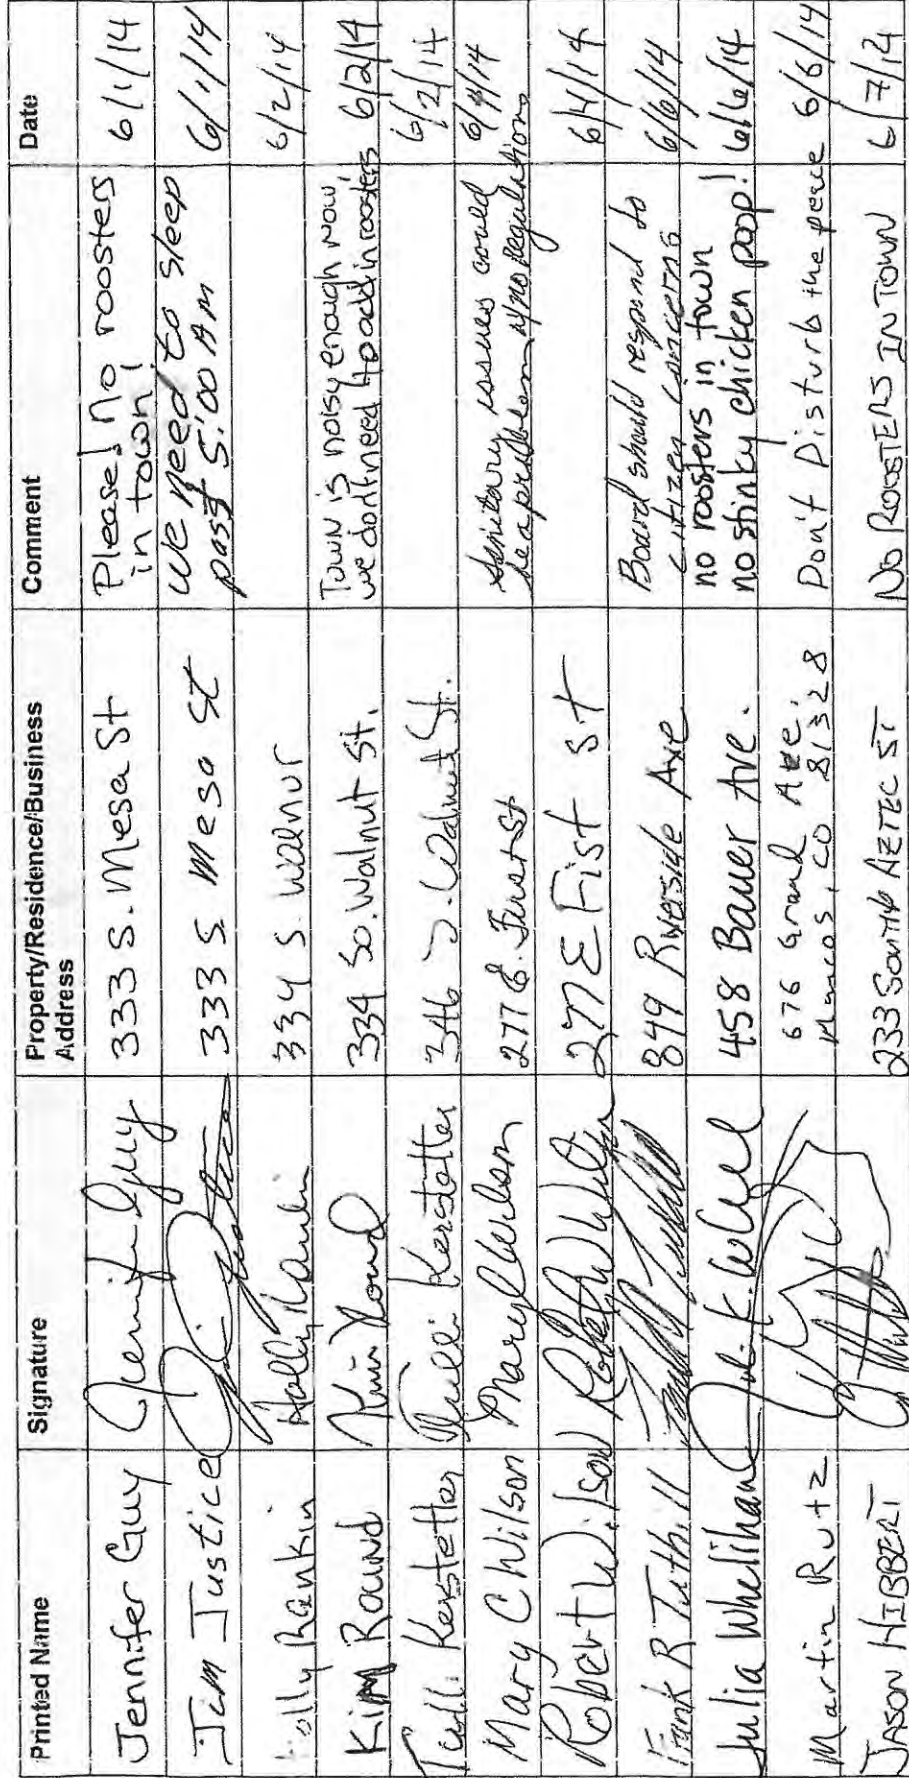 Printed Name Signature Property/Residence/Business Address Comment Date
Jennifer Guy Jennifer Guy 333 S. Mesa St Please! No roosters in town! 6/1/14
Jim Justice 333 S Mesa St We need to sleep past 5:00 AM 6/1/14
Holly Rankin Holly Rankin 334 S. Walnut 6/2/14
Kim Round Kim Round 334 So. Walnut St. Town is noisy enough now, we don't need to add in roosters 6/2/14
Kerstetter Kerstetter 346 S. Walnut St. 6/2/14
Mary C Wilson Mary C Wilson 277 E. First St Sanitary issues could be a problem w/ no regulations 6/4/14
Robert Wilson Robert Wilson 277 E Fist St 6/4/14
Frank R Tuthill 849 Riverside Ave Board should respond to citizen concerns 6/6/14
Julia Whelihan 458 Bauer Ave. no roosters in town no stinky chicken poop! 6/6/14
Martin Rutz 676 Grand Ave. Mancos, CO 81328 Don't Disturb the peace 6/6/14
JASON HIBBERT 233 SOUTH AZTEC ST NO ROOSTERS IN TOWN 6/7/14